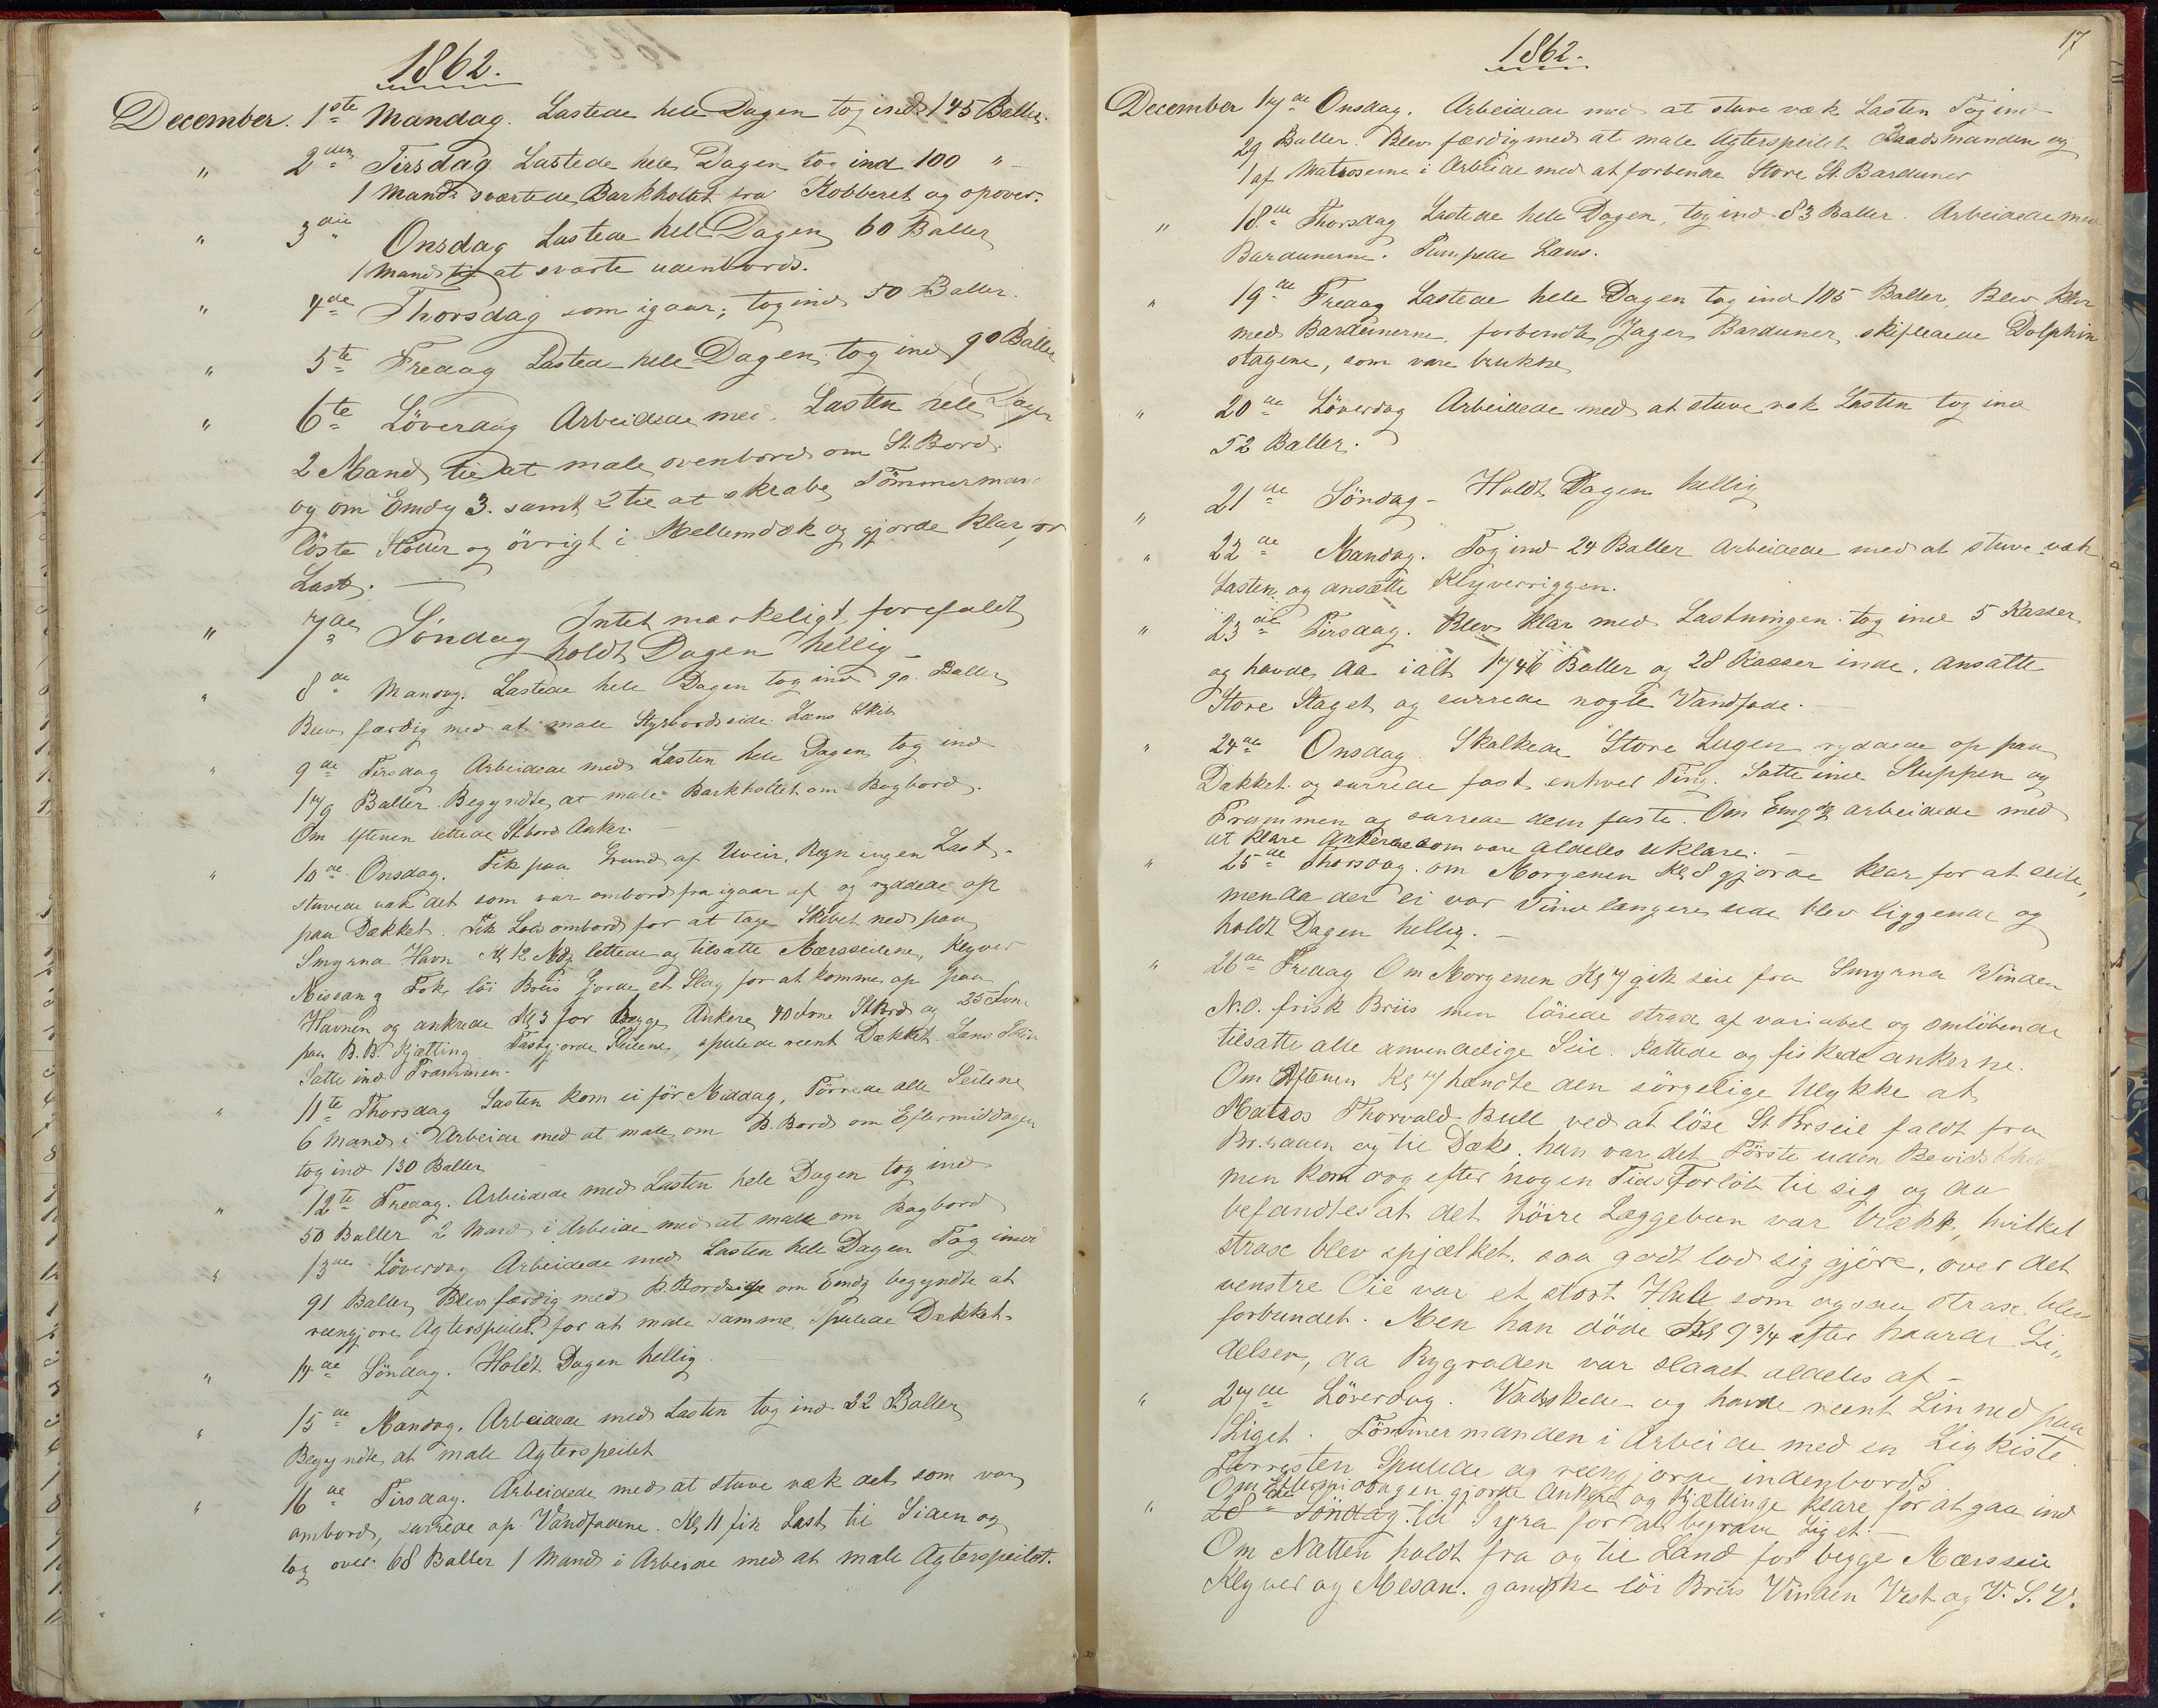 1862.
December. 1ste Mandag. Lastede hele Dagen tog ind 145 Baller.
" 2den Tirsdag Lastede hele Dagen tog ind 100 " -
1 Mand sværtede Barkholtet fra Kobberet og opover.
" 3die Onsdag Lastede hele Dagen 60 Baller
1 Mand til at sværte udenbords.
" 4de Thorsdag som igaar; tog ind 50 Baller.
" 5te Fredag Lastede hele Dagen tog ind 90 Baller
" 6te Löverdag Arbeidede med Lasten hele Dagen
2 Mand til at male ovenbord om St. Bord.
og om Emdg 3. samt 2 til at skrabe Tömmerman
löste Stötter og övrigt i Mellemdæk og gjorde klar for
Last. —
" 7de Söndag Intet mærkeligt forefaldt
holdt Dagen hellig —
" 8de Mandag. Lastede hele Dagen tog ind 90. Baller
Blev færdig med at male Styrbordsside. Læns Skib
" 9de Tirsdag Arbeidede med Lasten hele Dagen tog ind
179 Baller. Begyndte at male Barkholtet om Bagbord.
Om Aftenen lettede St.bord Anker.
" 10de Onsdag. Fik paa Grund af Uveir, Regn ingen Last.
stuvede væk det som var ombord fra igaar af og ryddede op
paa Dækket. Fik Lods ombord for at tage Skibet ned paa
Smyrna Havn Kl 12 Mdg lettede og tilsatte Mærsseilene, Klyver
Missan g Fok löi Briis Gjorde et Slag for at komme op paa
Havnen og ankrede Kl 3 for begge Ankere 40 Fvne St.Brd og 25 Fvne
paa B.B. Kjætting. Fastgjorde Seilene, spulede reent Dækket. Læns Skib
Satte ind Prammen.
" 11te Thorsdag Lasten kom ei för Middag, Törrede alle Seilene
6 Mand i Arbeide med at male om B. Bord om Eftermiddagen
tog ind 130 Baller —
" 12te Fredag. Arbeidede med Lasten hele Dagen tog ind
50 Baller 2 Mand i Arbeide med at male om Bagbord
" 13de Löverdag Arbeidede med Lasten hele Dagen Tog ind
91 Baller, Blev færdig med B. Bordside om Emdg begyndte at
reengjöre Agterspeilet for at male samme, spulede Dækket.
" 14de Söndag. Holdt Dagen hellig
" 15de Mandag. Arbeidede med Lasten tog ind 32 Baller
Begyndte at male Agterspeilet
" 16de Tirsdag. Arbeidede med at stuve væk det som var
ombord, surrede op Vandfadene. Kl 11 fik Last til Siden og
tog over 68 Baller 1 Mand i Arbeide med at male Agterspeilet.
17
1862.
December 17de Onsdag. Arbeidede med at stuve væk Lasten Tog ind
29 Baller. Blev færdig med at male Agterspeilet Baadsmanden og
1 af Matroserne i Arbeide med at forbende Store St. Barduner
" 18de Thorsdag Lastede hele Dagen, tog ind 83 Baller. Arbeidede med
Bardunerne. Pumpede Læns.
" 19de Fredag Lastede hele Dagen tog ind 105 Baller, Blev klar
med Bardunerne, forbendte Jager Barduner, skiftede Dolphin
stagene, som vare brukne
" 20de Löverdag Arbeidede med at stuve væk Lasten tog ind
52 Baller.
" 21de Söndag - Holdt Dagen hellig
" 22de Mandag. Tog ind 24 Baller Arbeidede med at stuve væk
Lasten, og ansætte Klyverriggen.
" 23de Tirsdag. Blev klar med Lastningen tog ind 5 Kasser
og havde da ialt 1746 Baller og 28 Kasser inde. ansatte
Store Staget og surrede nogle Vandfade. —
" 24de Onsdag. Skalkede Store Lugen ryddede op paa
Dækket og surrede fast enhver Ting. Satte ind Sluppen og
Prammen og surrede dem faste. Om Emdg arbeidede med
at klare Ankerne som vare aldeles uklare. —
" 25de Thorsdag. om Morgenen Kl 8 gjorde klar for at seile,
men da der ei var Vind længere ude blev liggende og
holdt Dagen hellig. —
" 26de Fredag Om Morgenen Kl 7 gik seil fra Smyrna Vinden
N.O. frisk Briis men löiede strax af variabel og omlöbende
tilsatte alle anvendelige Seil. Kattede og fiskede ankerne.
Om Aftenen Kl 7 hændte den sörgelige Ulykke at
Matros Thorvald Bull ved at löse St Brseil faldt fra
Br.raaen og til Dæks, han var det Förste uden Bevidsthed
men kom dog efter nogen Tids Forlöb til sig og da
befandtes at det höire Læggeben var brækk, hvilket
strax blev spjælket. saa godt lod sig gjöre. over det
venstre Öie var et stort Hull som ogsaa strax blev
forbundet. Men han döde Kl 9 3/4 efter haarde Li„
delser, da Rygraden var slaaet aldeles af —
" 27de Löverdag. Vadskede og havde reent Linned paa
Liget. Tömmermanden i Arbeide med en Ligkiste.
Forresten Spulede og reengjorde indenbords
Om Eftermiddagen gjorde Ankere og Kjættinge klare for at gaa ind
" 28de Söndag. til Syra for at begrave Liget. —
Om Natten holdt fra og til Land for begge Mærsseil
Klyver og Mesan. ganske löi Briis Vinden Vest og V.S.V.